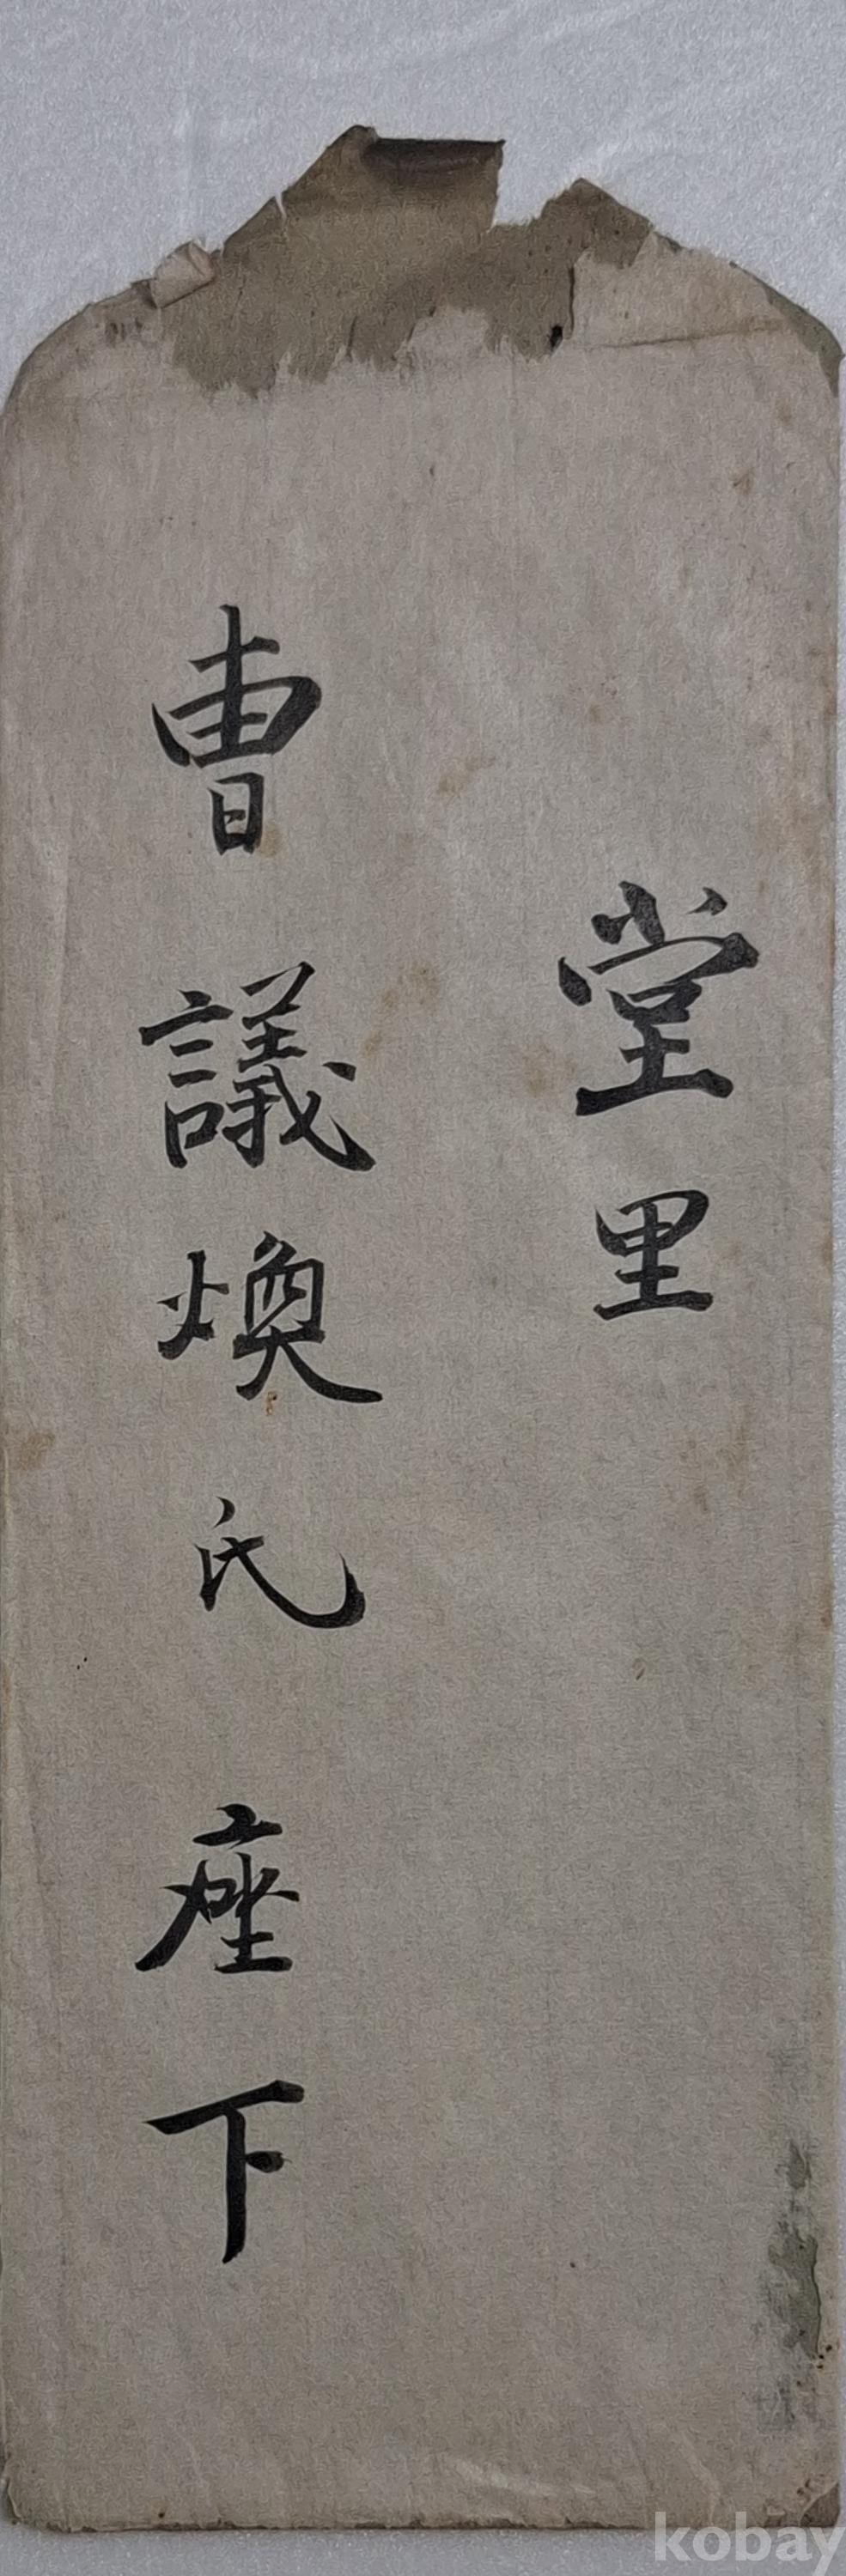 堂里
曺議煥氏 座下
kobay